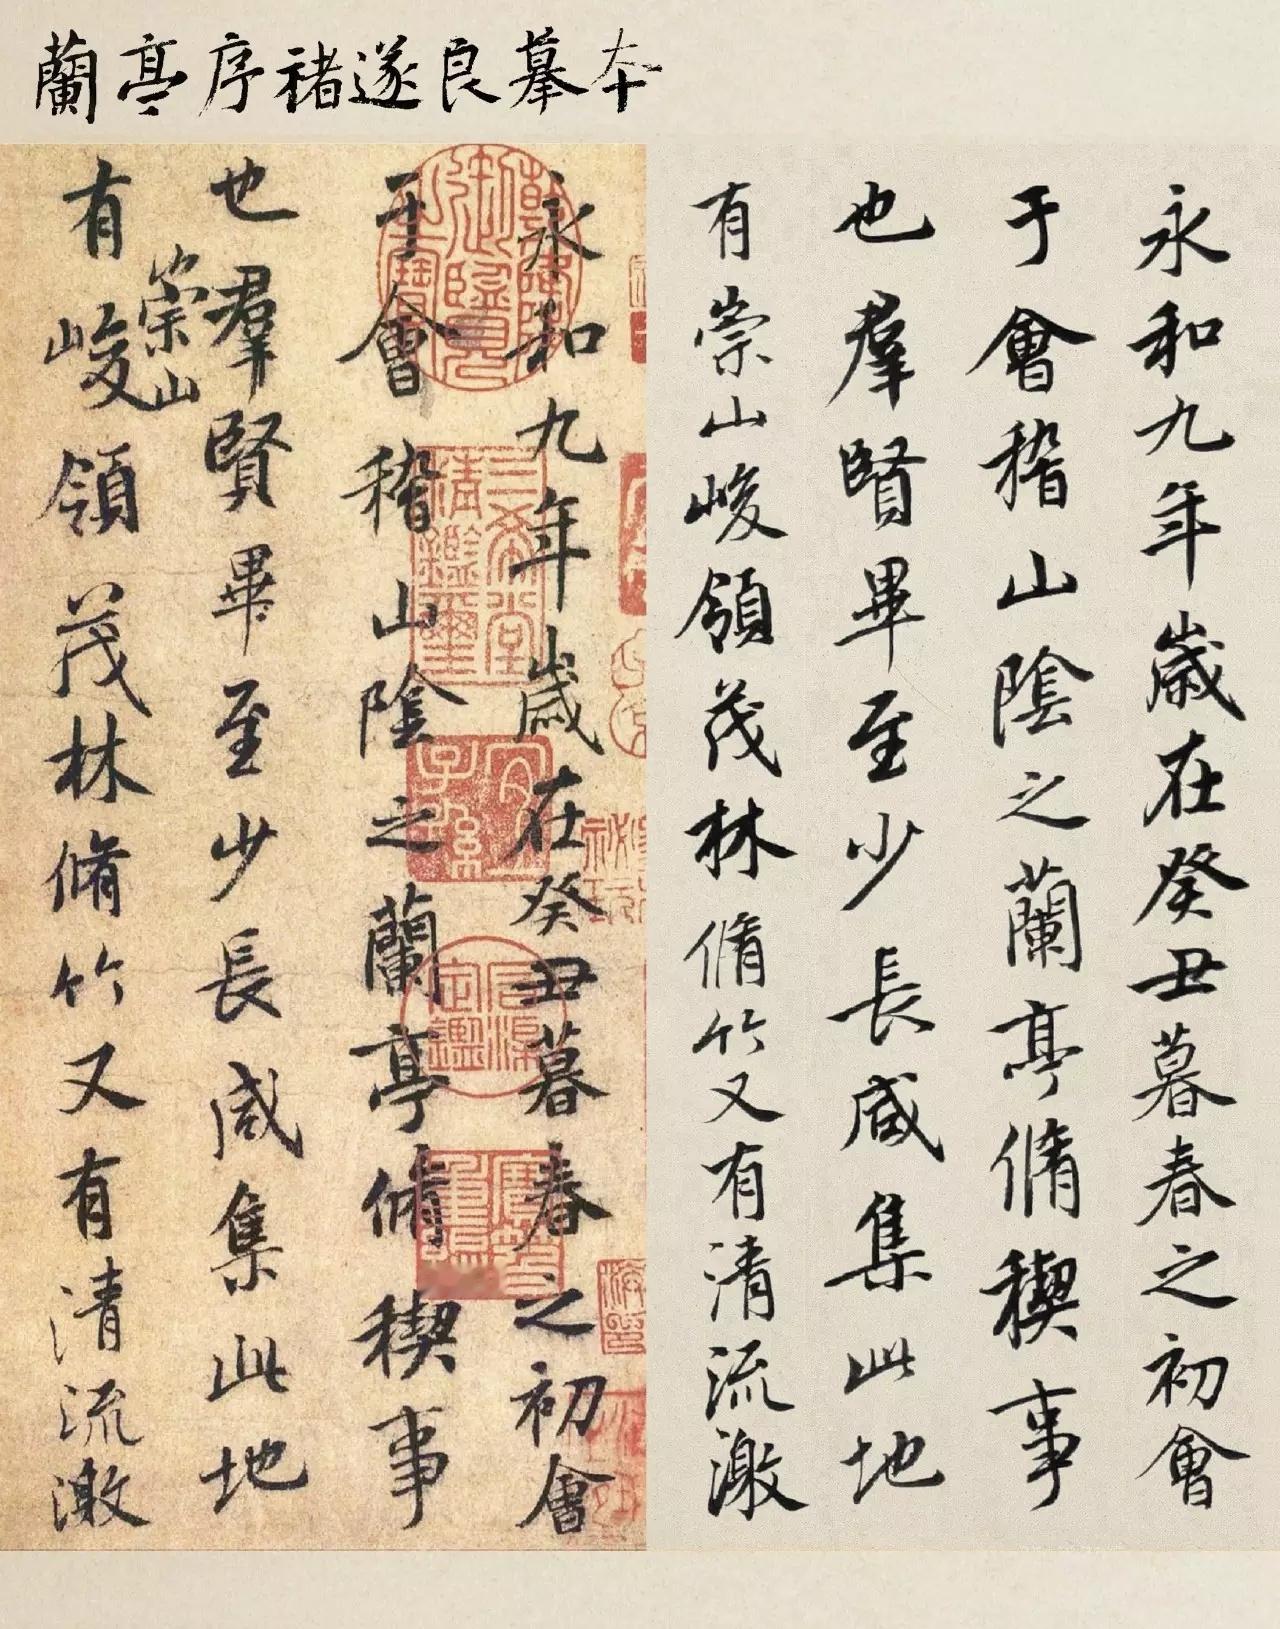 蘭亭序褚遂良摹本
永和九年歲在癸丑暮春之初會
于會稽山陰之蘭亭脩稧事
也羣賢畢至少長咸集此地
有崇山峻領茂林脩竹又有清流激
永和九年歲在癸丑暮春之初會
于會稽山陰之蘭亭脩稧事
也羣賢畢至少長咸集此地
崇山
有峻領茂林脩竹又有清流激
乾隆御覽之寶
三希堂精鑑璽
宜子孫
石渠定鑑
寶笈重編